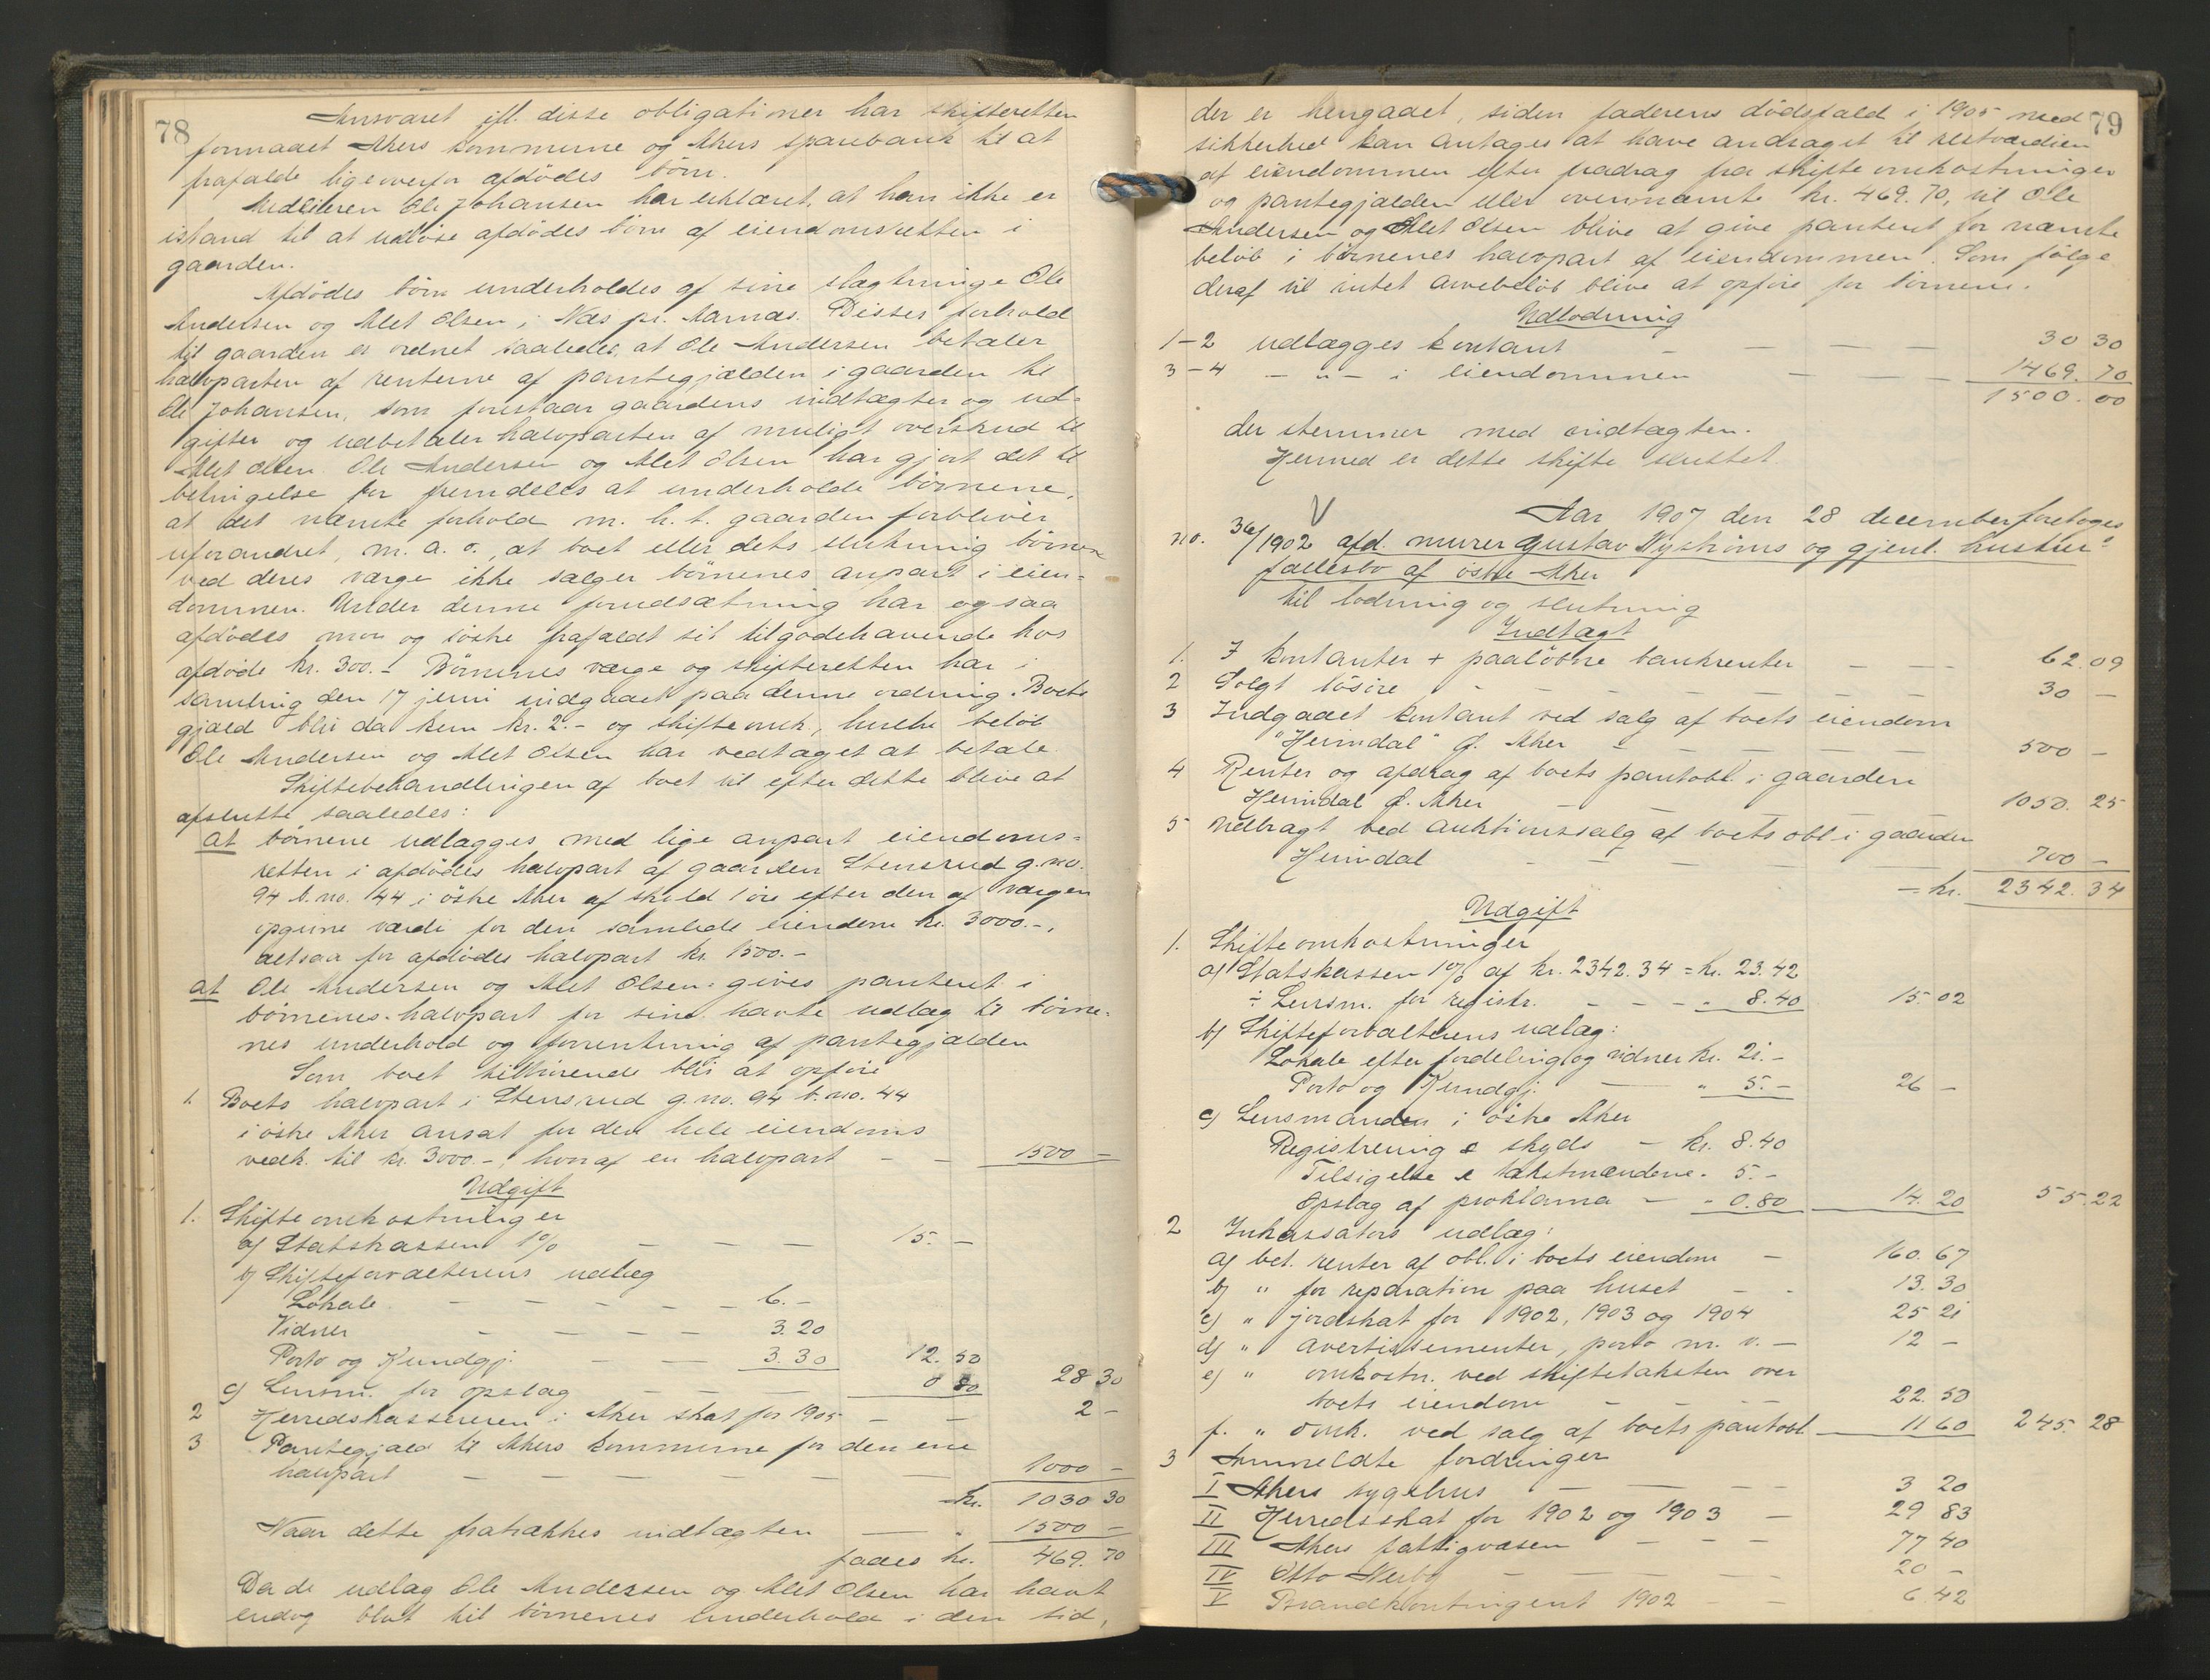 78
Ansvaret ifl. disse obligationer har skifteretten
formaaet Akers kommune og Akers sparebank til at
frafalde ligeoverfor afdødes børn.
Medeieren Ole Johansen har erklæret, at han ikke er
istand til at udløse afdødes børn af eiendomsretten i
gaarden.
Afdødes børn underholdes af sine slægtninge Ole
Andersen og Alet Olsen i Næs pr. Aarnæs. Disses forhold
til gaarden er ordnet saaledes, at Ole Andersen betaler
halvparten af renterne af pantegjælden i gaarden til
Ole Johansen, som forestaar gaardens indtægter og ud-
gifter og udbetaler halvparten af muligt overskud til
Alet Olsen. Ole Andersen og Alet Olsen har gjort det til
betingelse for fremdeles at underholde børnene,
at det nævnte forhold m. h. t. gaarden forbliver
uforandret, m. a. o., at boet eller dets slutning børnene
ved deres værge ikke sælger børnenes anpart i eien-
dommen. Under denne forudsætning har ogsaa
afdødes mor og søstre frafaldt sit tilgodehavende hos
afdøde kr. 300.- Børnenes værge og skifteretten har i
samling den 17 juni indgaaet paa denne ordning. Boets
gjæld blir da kun kr. 2.- og skifteomk., hvilke beløb
Ole Andersen og Alet Olsen har vedtaget at betale.
Skiftebehandlingen af boet vil efter dette blive at
afslutte saaledes:
at børnene udlægges med lige anpart eiendoms-
retten i afdødes halvpart af gaarden Stensrud g. no.
94 b. no. 144 i østre Aker af skyld 1 øre efter den af værgen
opgivne værdi for den samlede eiendom kr. 3000.-,
altsaa for afdødes halvpart kr. 1500.-
at Ole Andersen og Alet Olsen gives panteret i
børnenes halvpart for sine havte udlæg til børne-
nes underhold og forrentning af pantegjælden
Som boet tilhørende blir at opføre
1. Boets halvpart i Stensrud g. no. 94 b. no. 44
i østre Aker ansat for den hele eiendoms
vedk. til kr. 3000.-, hvoraf en halvpart - - 1500 -
Udgift
1. Skifteomkostninger
a) Statskassen 1% - - - 15. -
b) Skifteforvalterens udlæg
Lokale - - - - - 6. -
Vidner - - - - 3.20
Porto og Kundgj. - - 3.30 12. 50
c) Lensm. for opslag - - - 0 80 28 30
2 Herredskassereren i Aker skat for 1905 - - 2 -
3 Pantegjæld til Akers kommune for den ene
halvpart - - - - - - 1000 -
kr. 1030 30
Naar dette fratrækkes indtægten - " 1500 -
faaes kr. 469. 70
Da de udlæg Ole Andersen og Alet Olsen har havt
endog blot til børnenes underhold i den tid,
79
der er hengaaet, siden faderens dødsfald i 1905 med
sikkerhed kan antages at have andraget til restværdien
af eiendommen efter fradrag fra skifteomkostninger
og pantegjælden eller ovennævnte kr. 469.70, vil Ole
Andersen og Alet Olsen blive at give panteret for nævnte
beløb i børnenes halvpart af eiendommen. Som følge
deraf vil intet arvebeløb blive at opføre for børnene.
Udlodning
1-2 udlægges kontant - - - - 30 30
3-4 - " - i eiendommen - - - 1469. 70
1500. 00
der stemmer med indtægten.
Hermed er dette skifte sluttet.
Aar 1907 den 28 december foretoges
no. 36/1902 afd. murer Gustav Nystrøms og gjenl. hustrus
fællesbo af østre Aker
til lodning og slutning
Indtægt
1. I kontanter + paaløbne bankrenter - - - 62.09
2 Solgt løsøre - - - - - - - 30 -
3 Indgaaet kontant ved salg af boets eiendom
"Heimdal" Ø. Aker - - - - - 500 -
4 Renter og afdrag af boets pantobl. i gaarden
Heimdal Ø. Aker - - - - 1050. 25
5 Udbragt ved auktionssalg af boets obl. i gaarden
Heimdal - - - - - 700 -
= kr. 2342. 34
Udgift
1. Skifteomkostninger
a) Statskassen 1% af kr. 2342.34 = kr. 23.42
÷ Lensm. for registr. - - - " 8.40 15. 02
b) Skifteforvalterens udlæg:
Lokale efter fordeling og vidner kr. 21.-
Porto og Kundgj. - " 5.- 26 -
c) Lensmanden i østre Aker
Registrering & skyds - kr. 8.40
Tilsigelse & takstmændene " 5.-
Opslag af proklama - " 0.80 14. 20 55.22
2 Inkassators udlæg:
a) bet. renter af obl. i boets eiendom - 160. 67
b) " for reparation paa huset - - 13. 30
c) " jordskat for 1902, 1903 og 1904 25 21
d) " avertissementer, porto m. v. - 12 -
e) " omkostn. ved skiftetaksten over
boets eiendom - - - 22. 50
f. " omk. ved salg af boets pantobl. - 11 60 245. 28
3 Anmeldte fordringer
I Akers sygehus - - - - 3 20
II Herredsskat for 1902 og 1903 - 29 83
III Akers fattigvæsen - - - 77 40
IV Otto - - - - 20 -
V Brandkontingent 1902 - - 6.42